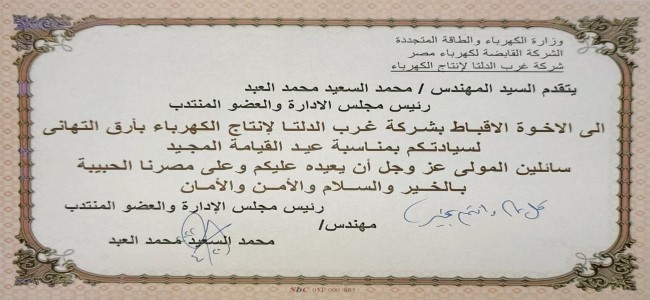 وزارة الكهرباء والطاقة المتجددة
الشركة القابضة لكهرباء مصر
شركة غرب الدلتا لإنتاج الكهرباء
يتقدم السيد المهندس / محمد السعيد محمد العبد
رئيس مجلس الادارة والعضو المنتدب
الى الاخوة الاقباط بشركة غرب الدلتا لإنتاج الكهرباء بأرق التهانى
لسيادتكم بمناسبة عيد القيامة المجيد
سائلين المولى عز وجل أن يعيده عليكم وعلى مصرنا الحبيبة
بالخير والسلام والأمن والأمان
رئيس مجلس الإدارة والعضو المنتدب
كل عام وانتم بخير
مهندس/
محمد السعيد محمد العبد